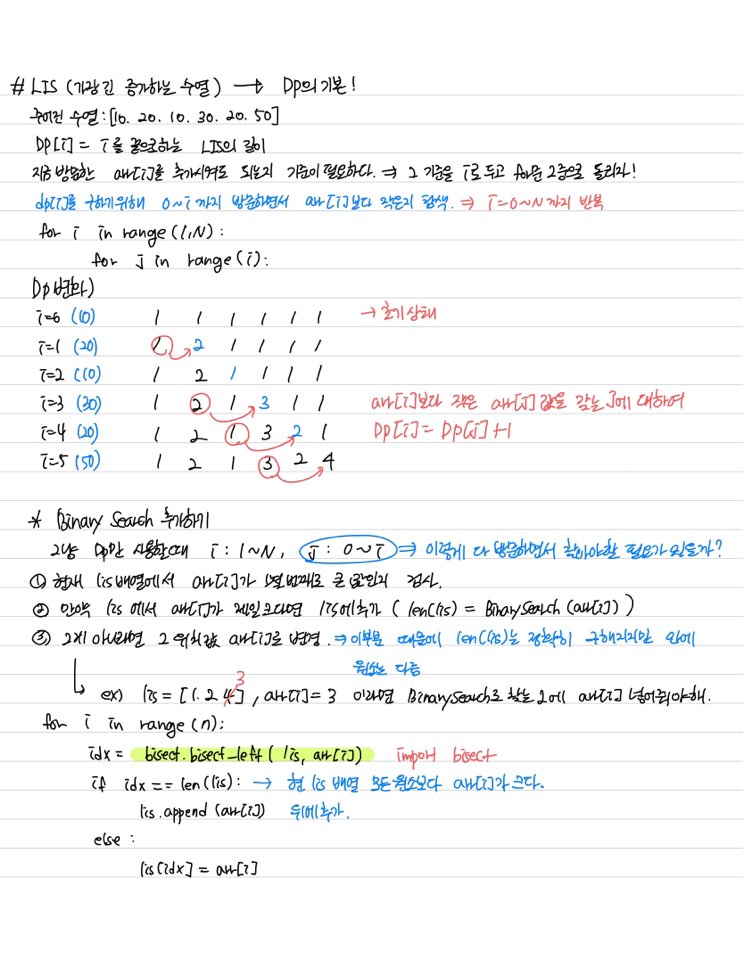 # LIS (가장 긴 증가하는 수열) → DP의 기본!
주어진 수열: [10. 20. 10. 30. 20. 50]
DP[i] = i를 끝으로하는 LIS의 길이
지금 방문한 arr[i]를 추가시켜도 되는지 기준이 필요하다. ⇒ 그 기준을 i로 두고 for문 2중으로 돌리자!
dp[i]를 구하기위해 0~i 까지 방문하면서 arr[i]보다 작은지 탐색. ⇒ i=0~N까지 반복
for i in range(1,N):
for j in range(i):
DP변화)
i=0 (10) 1 1 1 1 1 1 → 초기상태
i=1 (20) 1 2 1 1 1 1
i=2 (10) 1 2 1 1 1 1
i=3 (30) 1 2 1 3 1 1 arr[i]보다 작은 arr[j] 값을 갖는 j에 대하여
i=4 (20) 1 2 1 3 2 1 DP[i] = DP[j]+1
i=5 (50) 1 2 1 3 2 4
* Binary Search 추가하기
그냥 DP만 사용할때 i : 1~N, j : 0~i ⇒ 이렇게 다 방문하면서 찾아야할 필요가 있을까?
① 현재 lis배열에서 arr[i]가 몇번째로 큰 값인지 검사.
② 만약 lis에서 arr[i]가 제일크다면 lis에 추가 ( len(lis) = BinarySearch(arr[i]) )
③ 그게 아니라면 그 위치값 arr[i]로 변경. ⇒ 이부분 때문에 len(lis)는 정확히 구해지지만 안에
원소는 다름
3
ex) lis = [1. 2 4], arr[i] = 3 이라면 BinarySearch로 찾는 2에 arr[i] 넣어줘야해.
for i in range(n):
idx = bisect.bisect_left(lis, arr[i]) import bisect
if idx == len(lis): → 현 lis 배열 모든원소보다 arr[i]가 크다.
lis.append(arr[i]) 뒤에추가.
else :
lis[idx] = arr[i]